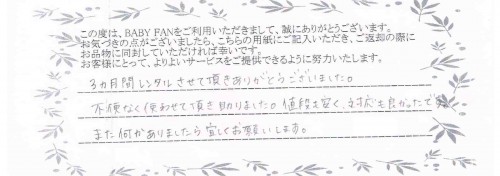 この度は、BABY FANをご利用いただきまして、誠にありがとうございます。
お気づきの点がございましたら、こちらの用紙にご記入いただき、ご返却の際に
お品物に同封していただければ幸いです。
お客様にとって、よりよいサービスをご提供できるように努力いたします。
3ヵ月間レンタルさせて頂きありがとうございました。
不便なく使わせて頂き助かりました。値段も安く、対応も良かったです
また何かありましたら宜しくお願いします。